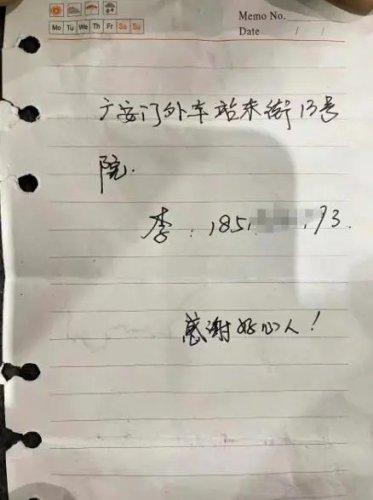 Memo No.
Mo Tu We Th Fr Sa Su
Date / /
广安门外车站东街13号
院.
李:185 93.
感谢好心人!